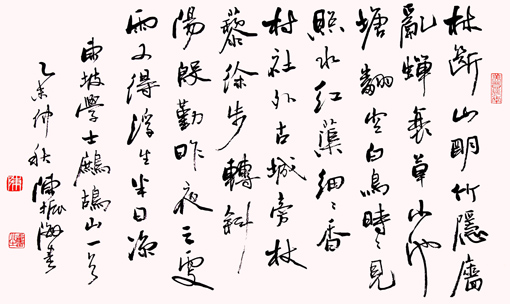 林斷山明竹隱牆
亂蟬衰草小池
塘翻空白鳥時々見
照水紅蕖細々香
村社外古城旁杖
藜徐步轉斜
陽殷勤昨夜三更
雨又得浮生半日涼
東坡學士鷓鴣山一首
乙未仲秋陳振海書